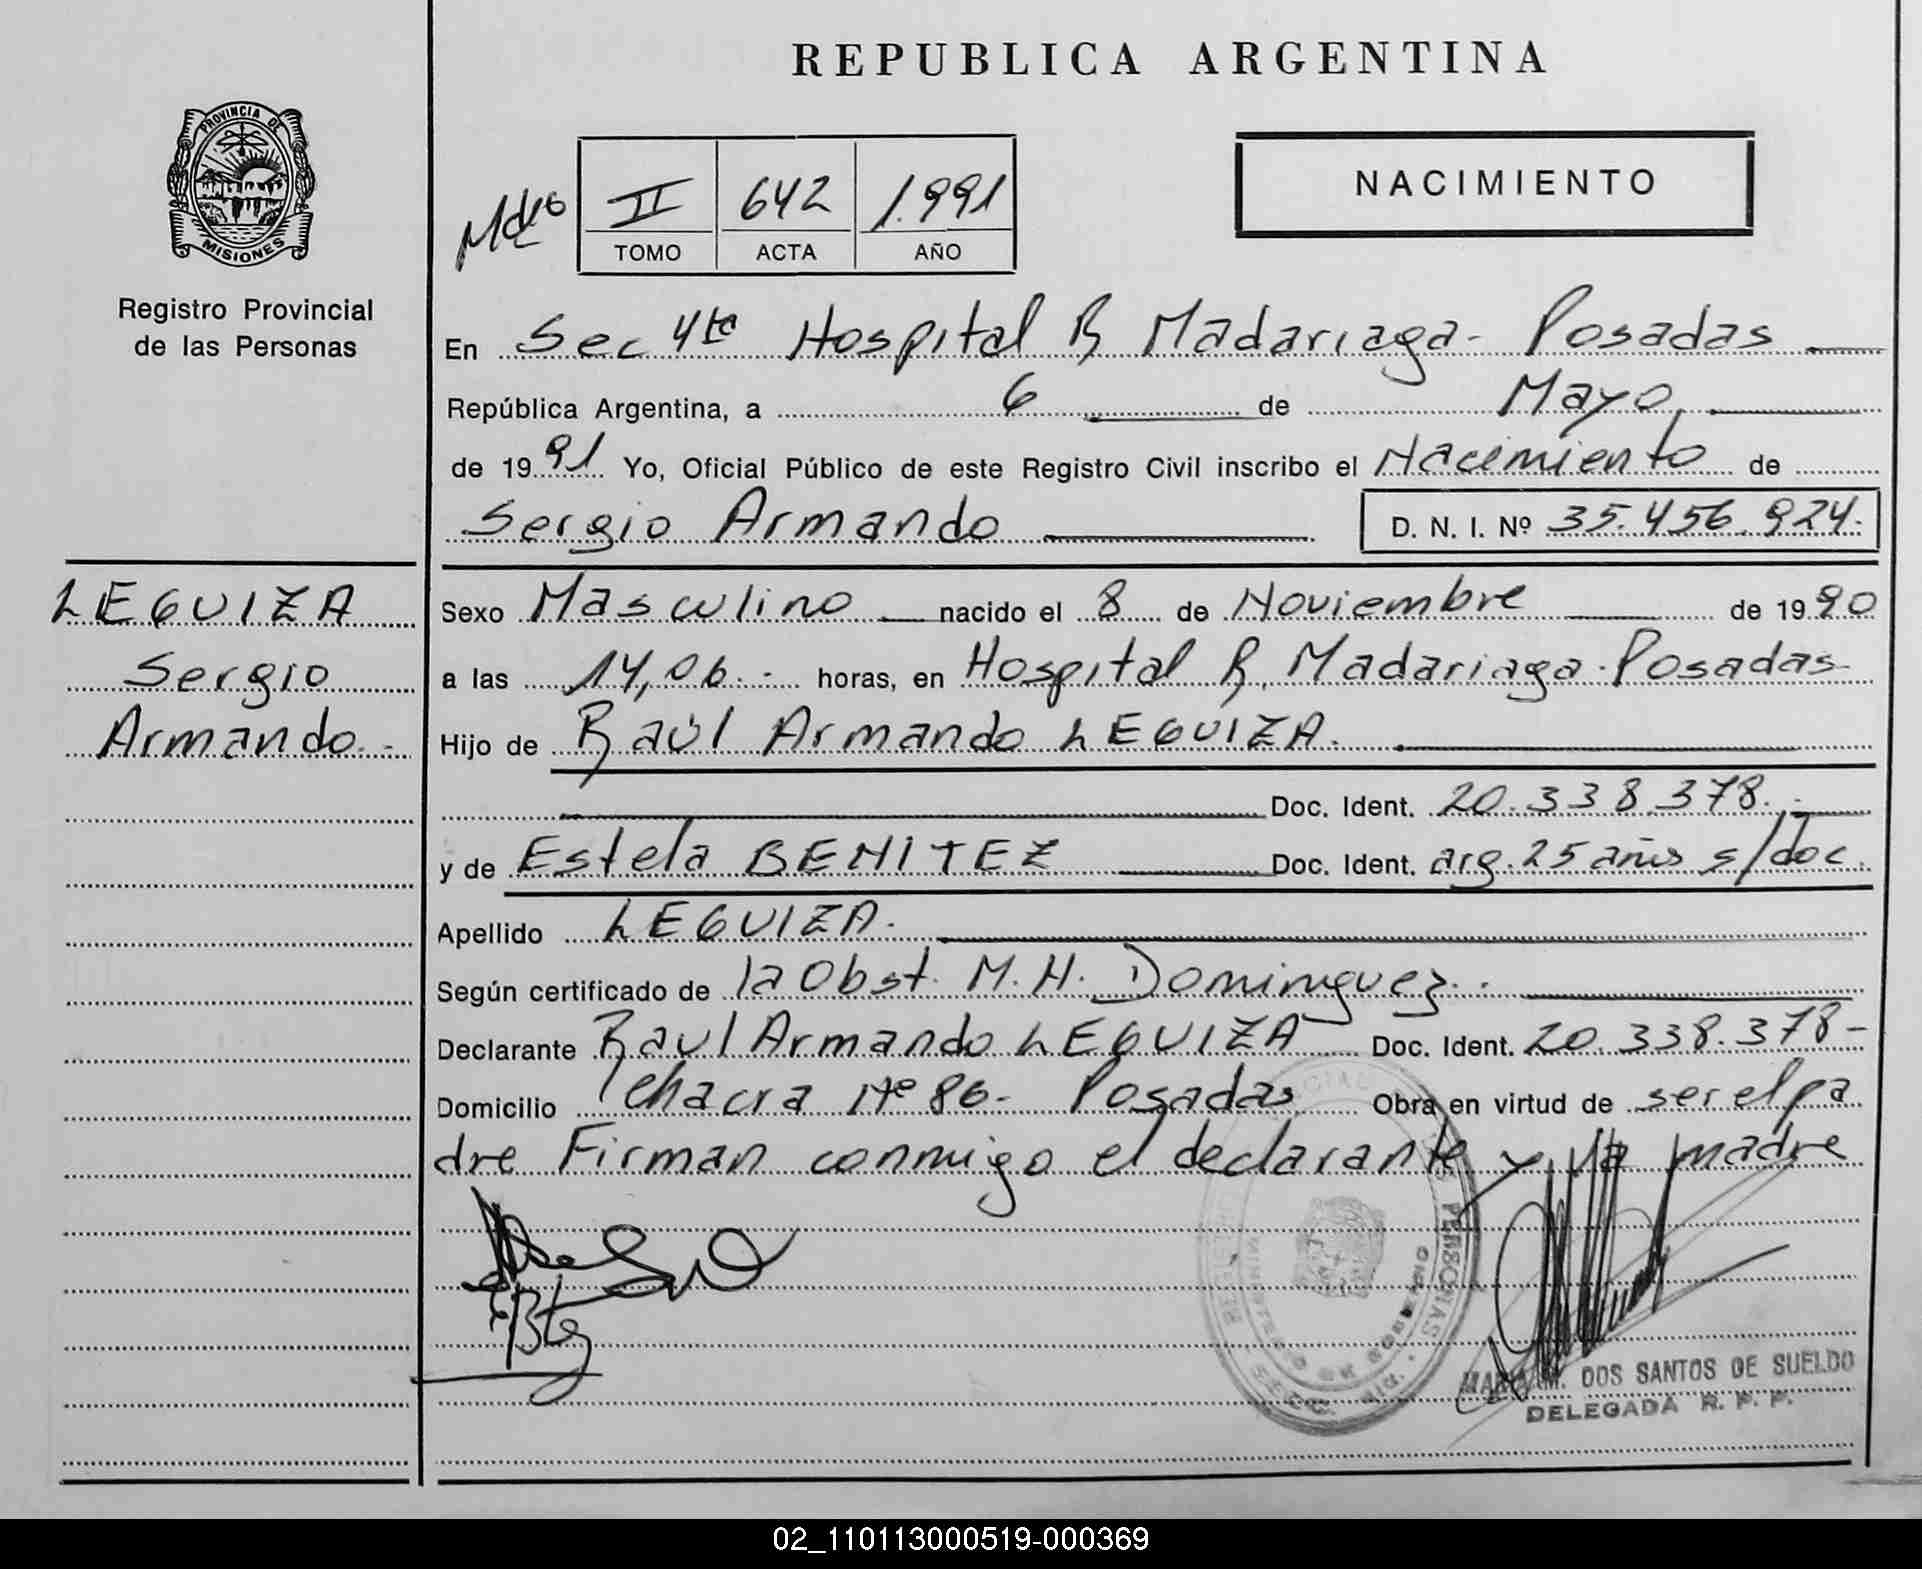 REPUBLICA ARGENTINA
PROVINCIA DE
MISIONES
Registro Provincial
de las Personas
II 642 1.991
TOMO ACTA AÑO
NACIMIENTO
En Sec 4ta Hospital R Madariaga - Posadas
República Argentina, a 6 de Mayo
de 1991 Yo, Oficial Público de este Registro Civil inscribo el Nacimiento de
Sergio Armando D. N. I. Nº 35.456.924.
LEGUIZA
Sergio
Armando.-
Sexo Masculino nacido el 8 de Noviembre de 1990
a las 14,06.- horas, en Hospital R. Madariaga - Posadas
Hijo de Raúl Armando LEGUIZA.
Doc. Ident. 20.338.378.-
y de Estela BENITEZ Doc. Ident. arg. 25 años s/doc.
Apellido LEGUIZA.
Según certificado de la Obst. M. H. Dominguez.
Declarante Raul Armando LEGUIZA Doc. Ident. 20.338.378-
Domicilio chacra Nº 86- Posadas Obra en virtud de ser el pa
dre Firman conmigo el declarante y la madre
PERSONAS
MINISTERIO DE GOBIERNO
DOS SANTOS DE SUELDO
DELEGADA R. P. P.
02_110113000519-000369